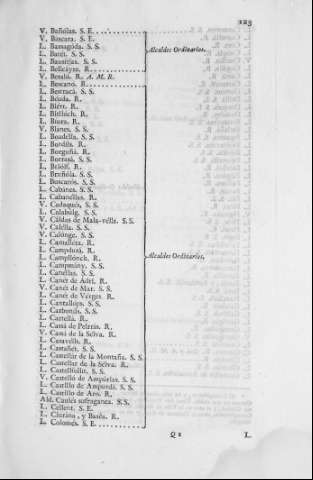 123
V. Bañolas. S. E.
V. Bascara. S. E.
L. Bamagóda. S. S.
L. Batét. S. S.
L. Bausitjas. S. S.
L. Bellcayre. R.
V. Besalú. R. A. M. R.
L. Bescano. R.
L. Bestracá. S. S.
L. Béuda. R.
L. Biért. R.
L. R.
L. Biura. R.
V. Blanes. S. S.
L. Boadélla. S. S.
L. Bordils. R.
L. Borgoñá. R.
L. Borrasá. S. S.
L. R.
L. Breñóla. S. S.
L. Buscarós. S. S.
L. Cabánes. S. S.
L. Cabanéllas. R.
V. Cadaqués. S. S.
L. Calabúig. S. S.
V. Cáldas de Mala-vélla. S. S.
V. Calélla. S. S.
V. Calónge. S. S.
L. Camalléra. R.
L. Campdurá. R.
L. Campllónch. R.
L. Campmány. S. S.
L. Canéllas. S. S.
L. Canét de Adrí. R.
V. Canét de Mar. S. S.
L. Canét de Vérges. R.
L. Cantallóps. S. S.
L. Carbonils. S. S.
L. Cartellá. R.
L. Casá de Pelrás. R.
V. Casá de la Selva. R.
L. Casavells. R.
L. Castañét. S. S.
L. Castellár de la Montaña. S. S.
L. Castellar de la Sélva. R.
L. Castellfullit. S. S.
V. Castelló de Ampúrias. S. S.
L. Castíllo de Ampurdá. S. S.
L. Castillo de Aro. R.
Ald. Caulés sufraganea. S. S.
L. Cellent. S. E.
L. Clariana, y Baséa. R.
L. Colomés. S. E.
Alcaldes Ordinarios.
Alcaldes Ordinarios.
Q 2 L.